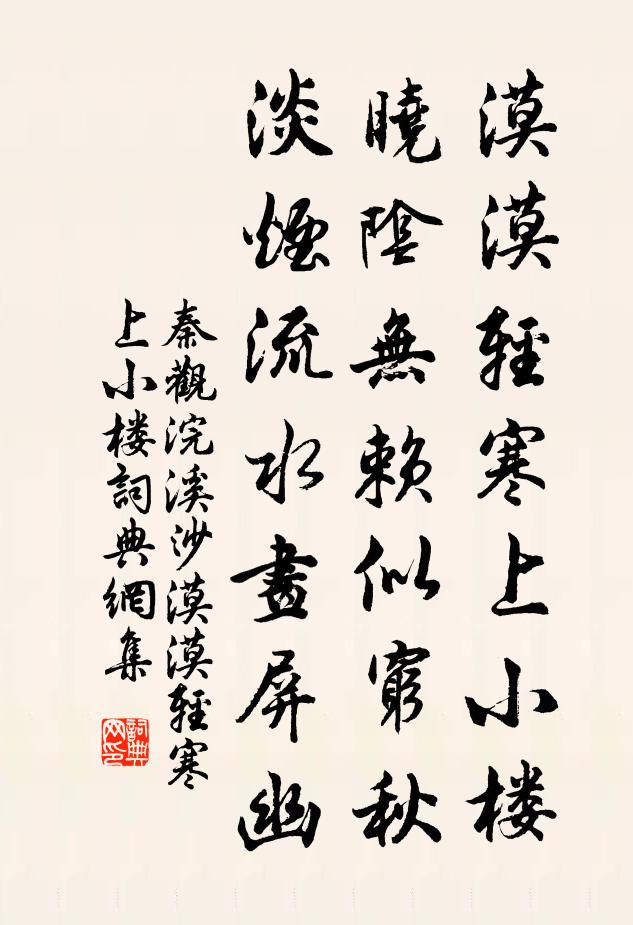 漠漠輕寒上小楼
曉陰無賴似窮秋
淡煙流水畫屏幽
秦觀浣溪沙漠漠輕寒
上小楼詞典網集
詞典网印